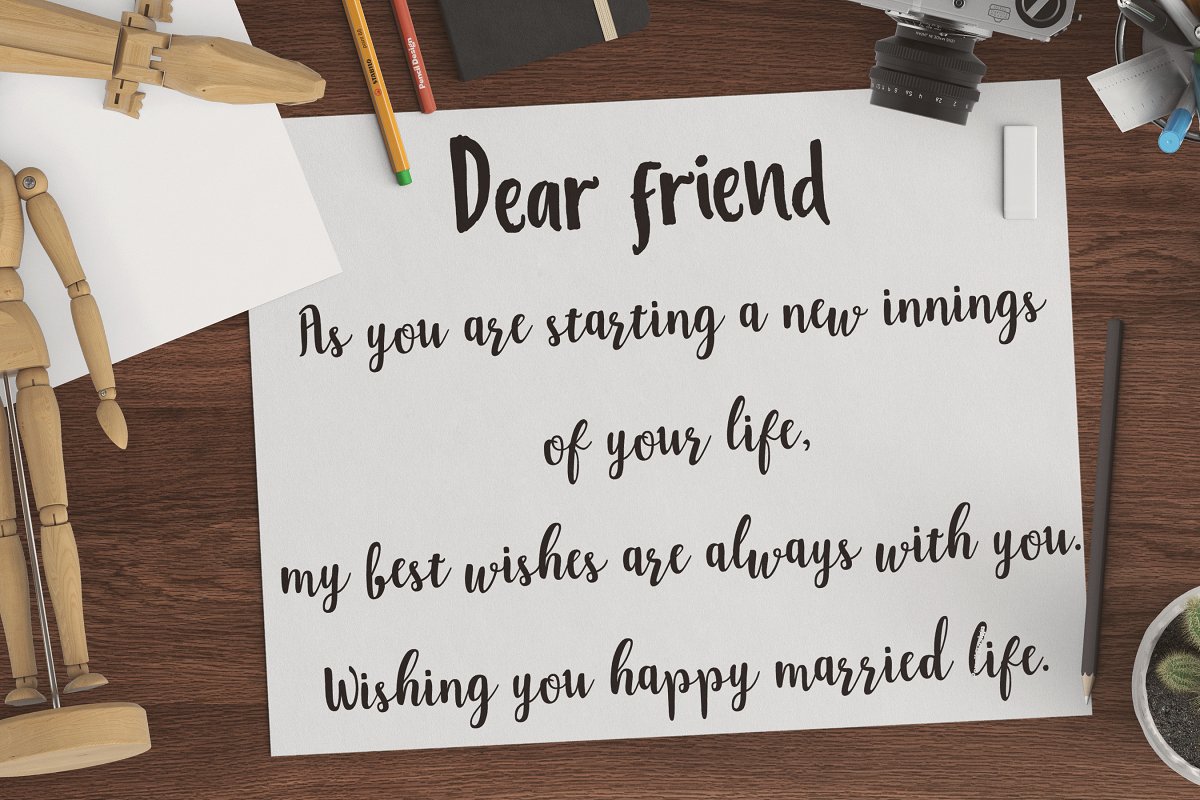 STABILO
Pencil Design
Dear friend
As you are starting a new innings
of your life,
my best wishes are always with you.
Wishing you happy married life.